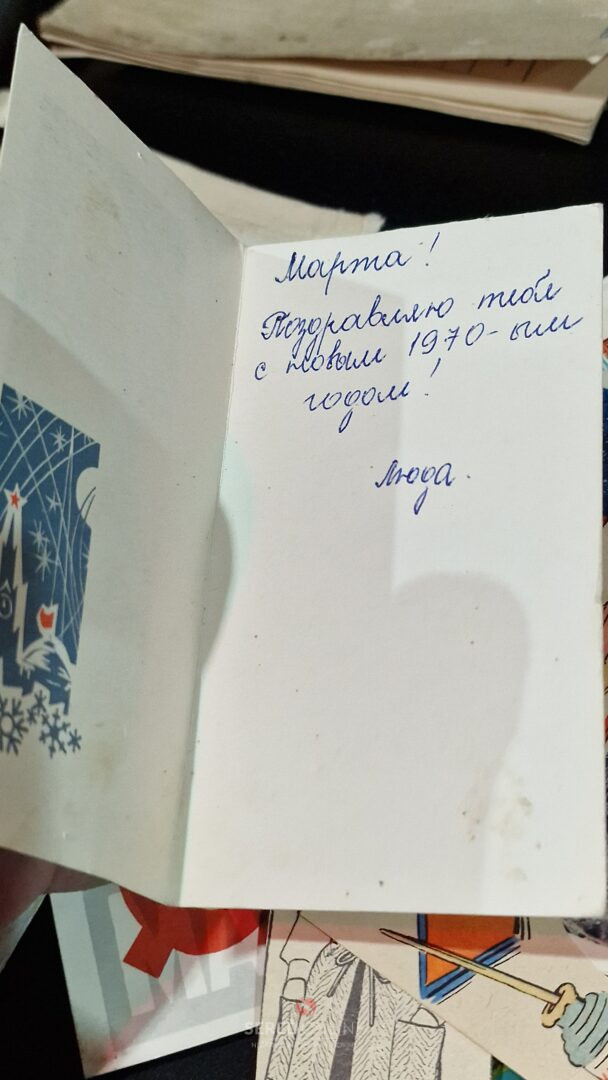 Марта!
Поздравляю тебя
с новым 1970-ым
годом!
Люда.
МА